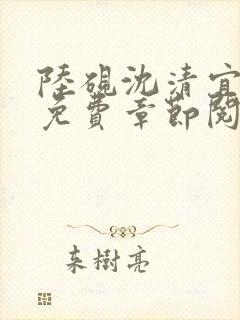 陸硯沈清宜
免費章節閱
来樹亮